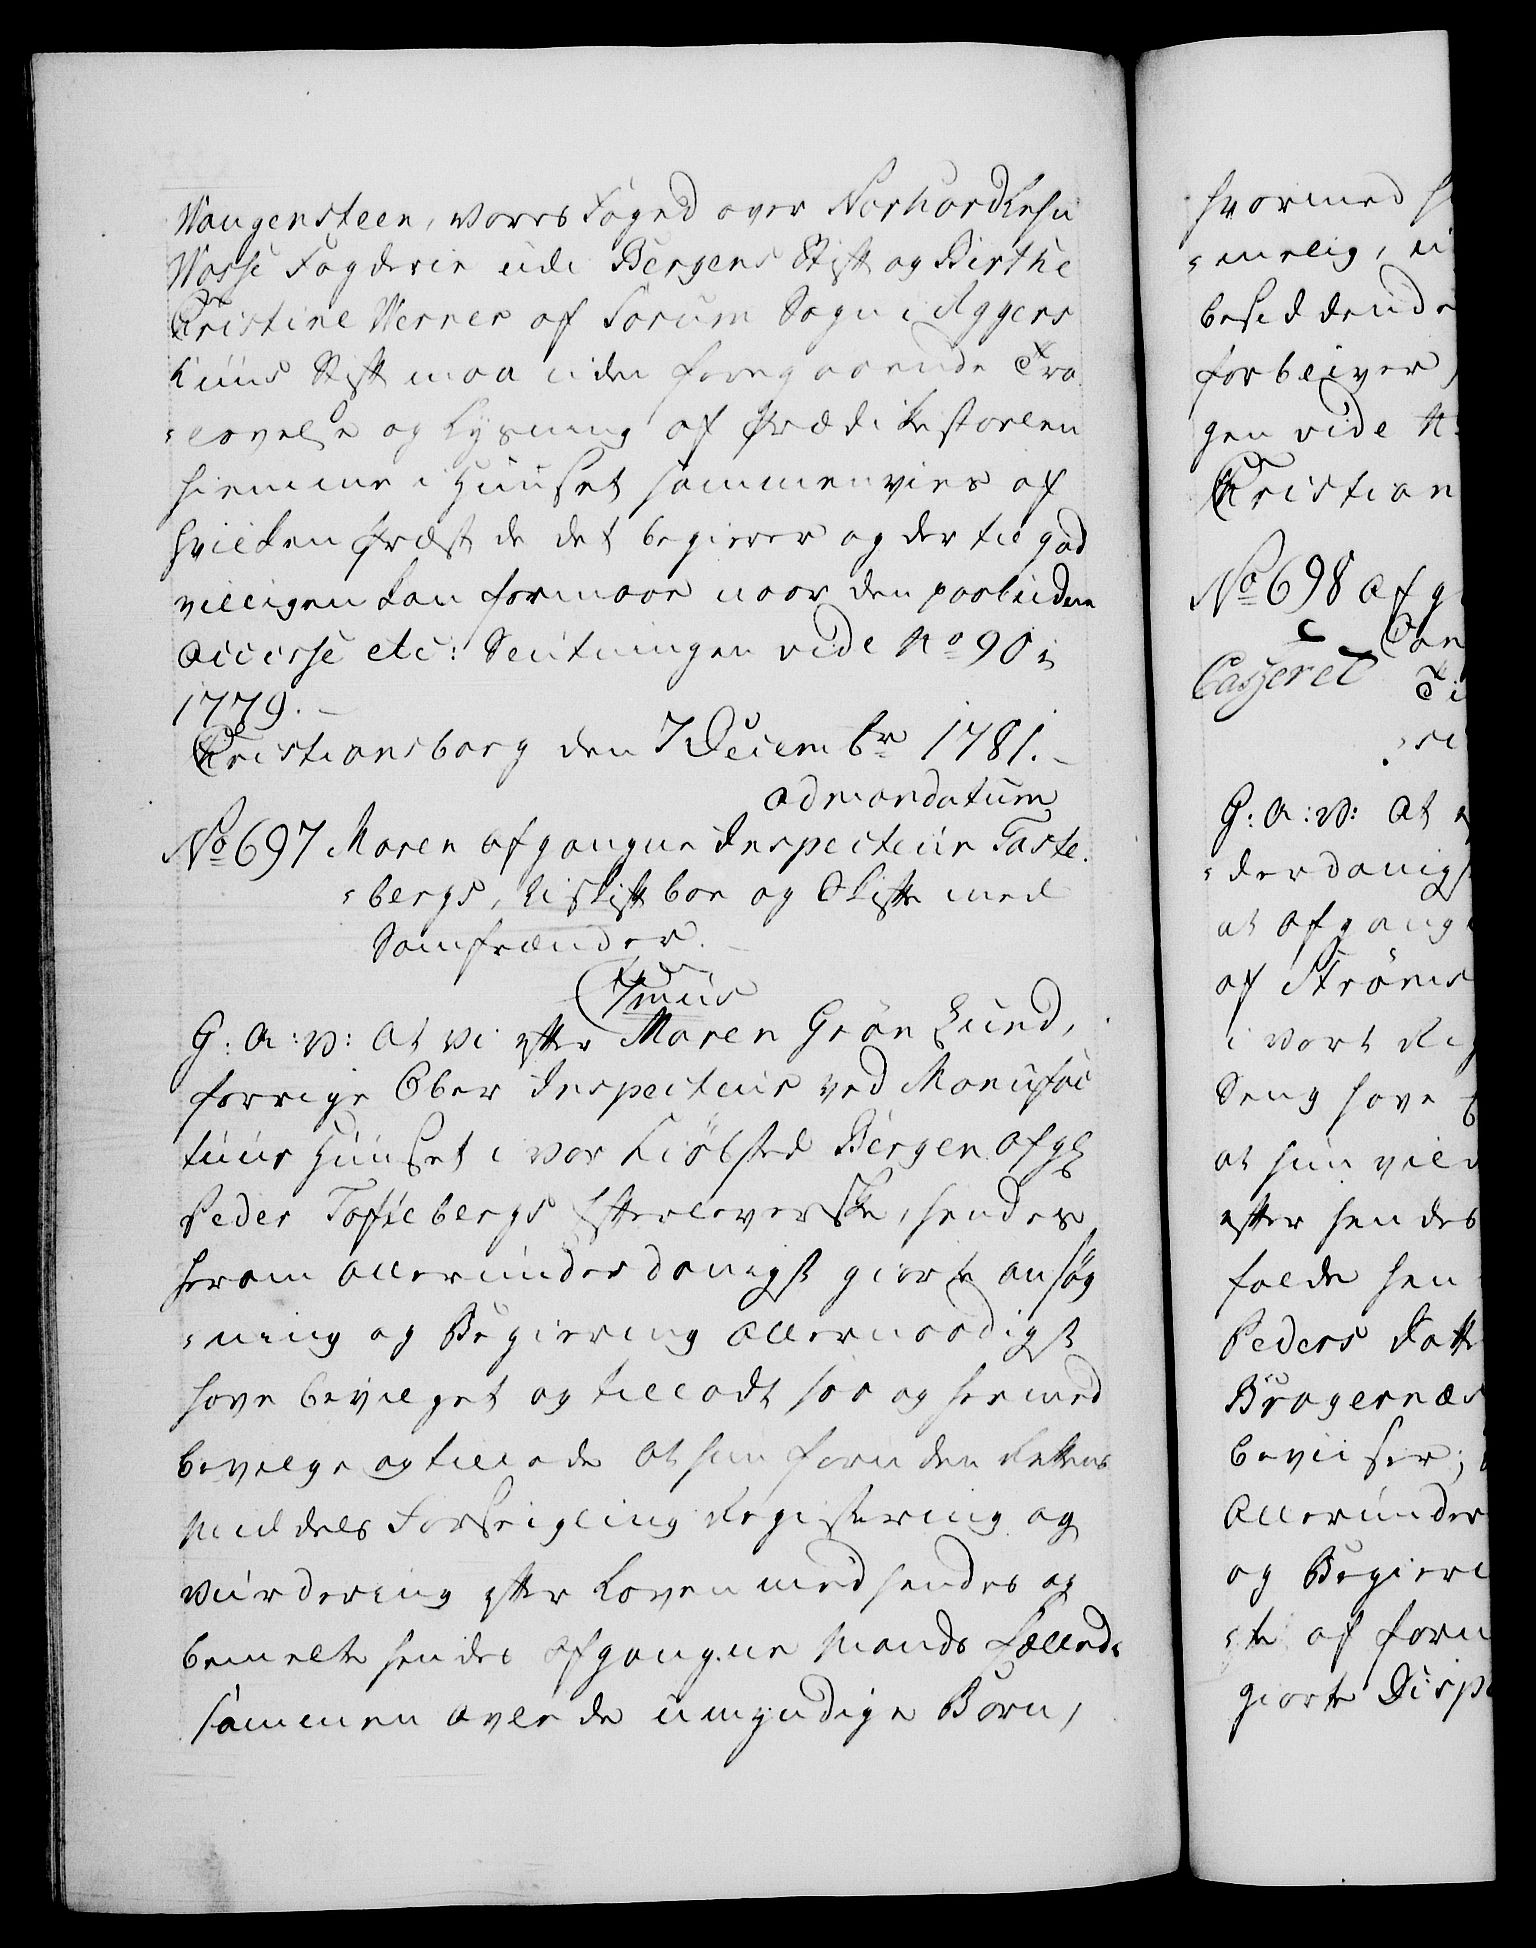 Wangensteen, vores Foged over Norhordlehn
Wosse Fogderie udi Bergens Stift og Birthe
Christine Werner af Sørum Sogn i Aggers
huus Stift maa uden foregaaende Tro
=lovelse og Lysning af Prædikestoelen
hiemme i Huuset sammenvies af
hvilken Præst de det begierer og der til god
villigen kan formaae naar den paabudene
Accisse etc: Slutningen vide No 90 i
1779.
Christiansborg den 7 Decembr 1781.
ad mandatum
No 697 Maren afgangne Inspecteur Tofte
=bergs, Uskift boe og Skifte med
Samfrænder.
G: A: V: At vi efter Maren Grön Lund,
forrige Ober Inspecteur ved Manufac
tuur Huuset i vor Kiöbsted Bergen afgl
Peder Toftebergs Efterleverske, hendes
herom allerunderdanigst giorte ansøg
=ning og Begiering allernaadigst
have bevilget og tilladt saa og hermed
bevilge og tillade at hun foruden Rettens
Middels Forseigling Registering og
vurdering efter Loven med hendes og
bemelte hendes afgangne Mands Fælleds
sammen avlede umyndige Børn,
hvormed
=melig, u
besiddende
forbliver,
gen vide N
Christian
No 698 Afg
Casseret
G: A: V: At
=derdanigst
at afgang
af Ströms
i vort Rig
Seng have
at hun vil
efter hendes
falde hen
Peders Datt
Bragernæs
beviiser;
Allerunder
og Begiere
=te af foru
giorte Disp